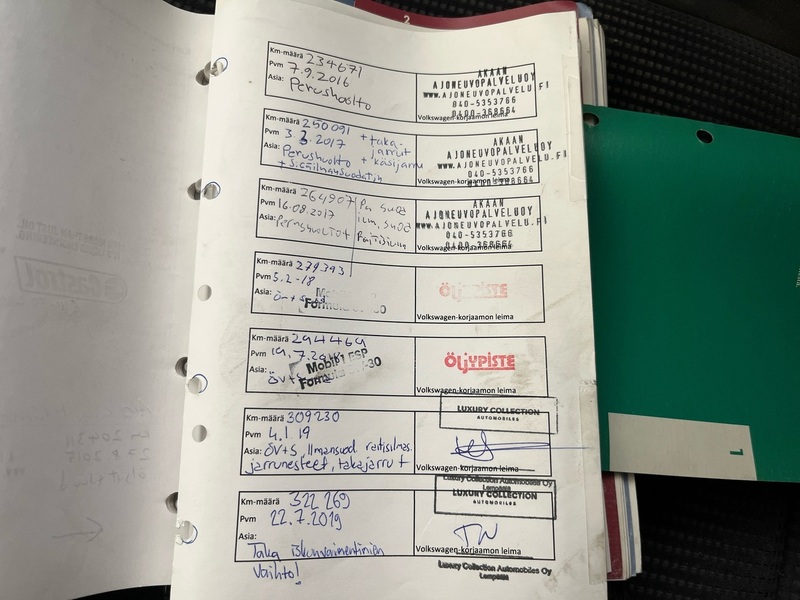 2
Km-määrä 234671
Pvm 7.9.2016
Asia: Perushuolto
AKAAN
AJONEUVOPALVELUOY
www.AJONEUVOPALVELU.FI
040-5353766
0400-368664
Volkswagen-korjaamon leima
Km-määrä 250091 + taka-
Pvm 3.3.2017 jarrut
Asia: Perushuolto + käsijarru
+ Sisäilmansuodatin
AKAAN
AJONEUVOPALVELUOY
www.AJONEUVOPALVELU.FI
040-5353766
0400-368664
Volkswagen-korjaamon leima
Km-määrä 264907
Pvm 16.08.2017
Asia: Perushuolto+
ilm. suod
Raitisilm
AKAAN
AJONEUVOPALVELUOY
www.AJONEUVOPALVELU.FI
040-5353766
0400-368664
Volkswagen-korjaamon leima
Km-määrä 279393
Pvm 5.2-18
Asia: öv+s
Formula 30
ÖLJYPISTE
Volkswagen-korjaamon leima
Km-määrä 294469
Pvm 19.7.
Asia: öv+s
Mobil 1 ESP
Formula -30
ÖLJYPISTE
Volkswagen-korjaamon leima
Km-määrä 309230
Pvm 4.1 19
Asia: öv+s, Ilmansuod raitisilmas.
jarrunesteet, takajarrut
LUXURY COLLECTION
AUTOMOBILES
Volkswagen-korjaamon leima
Luxury Collection Automobiles Oy
Lempäälä
Km-määrä 322 269
Pvm 22.7.2019
Asia:
Taka iskunvaimentimien
Vaihto!
LUXURY COLLECTION
AUTOMOBILES
TN
Volkswagen-korjaamon leima
Luxury Collection Automobiles Oy
Lempäälä
1
Castrol